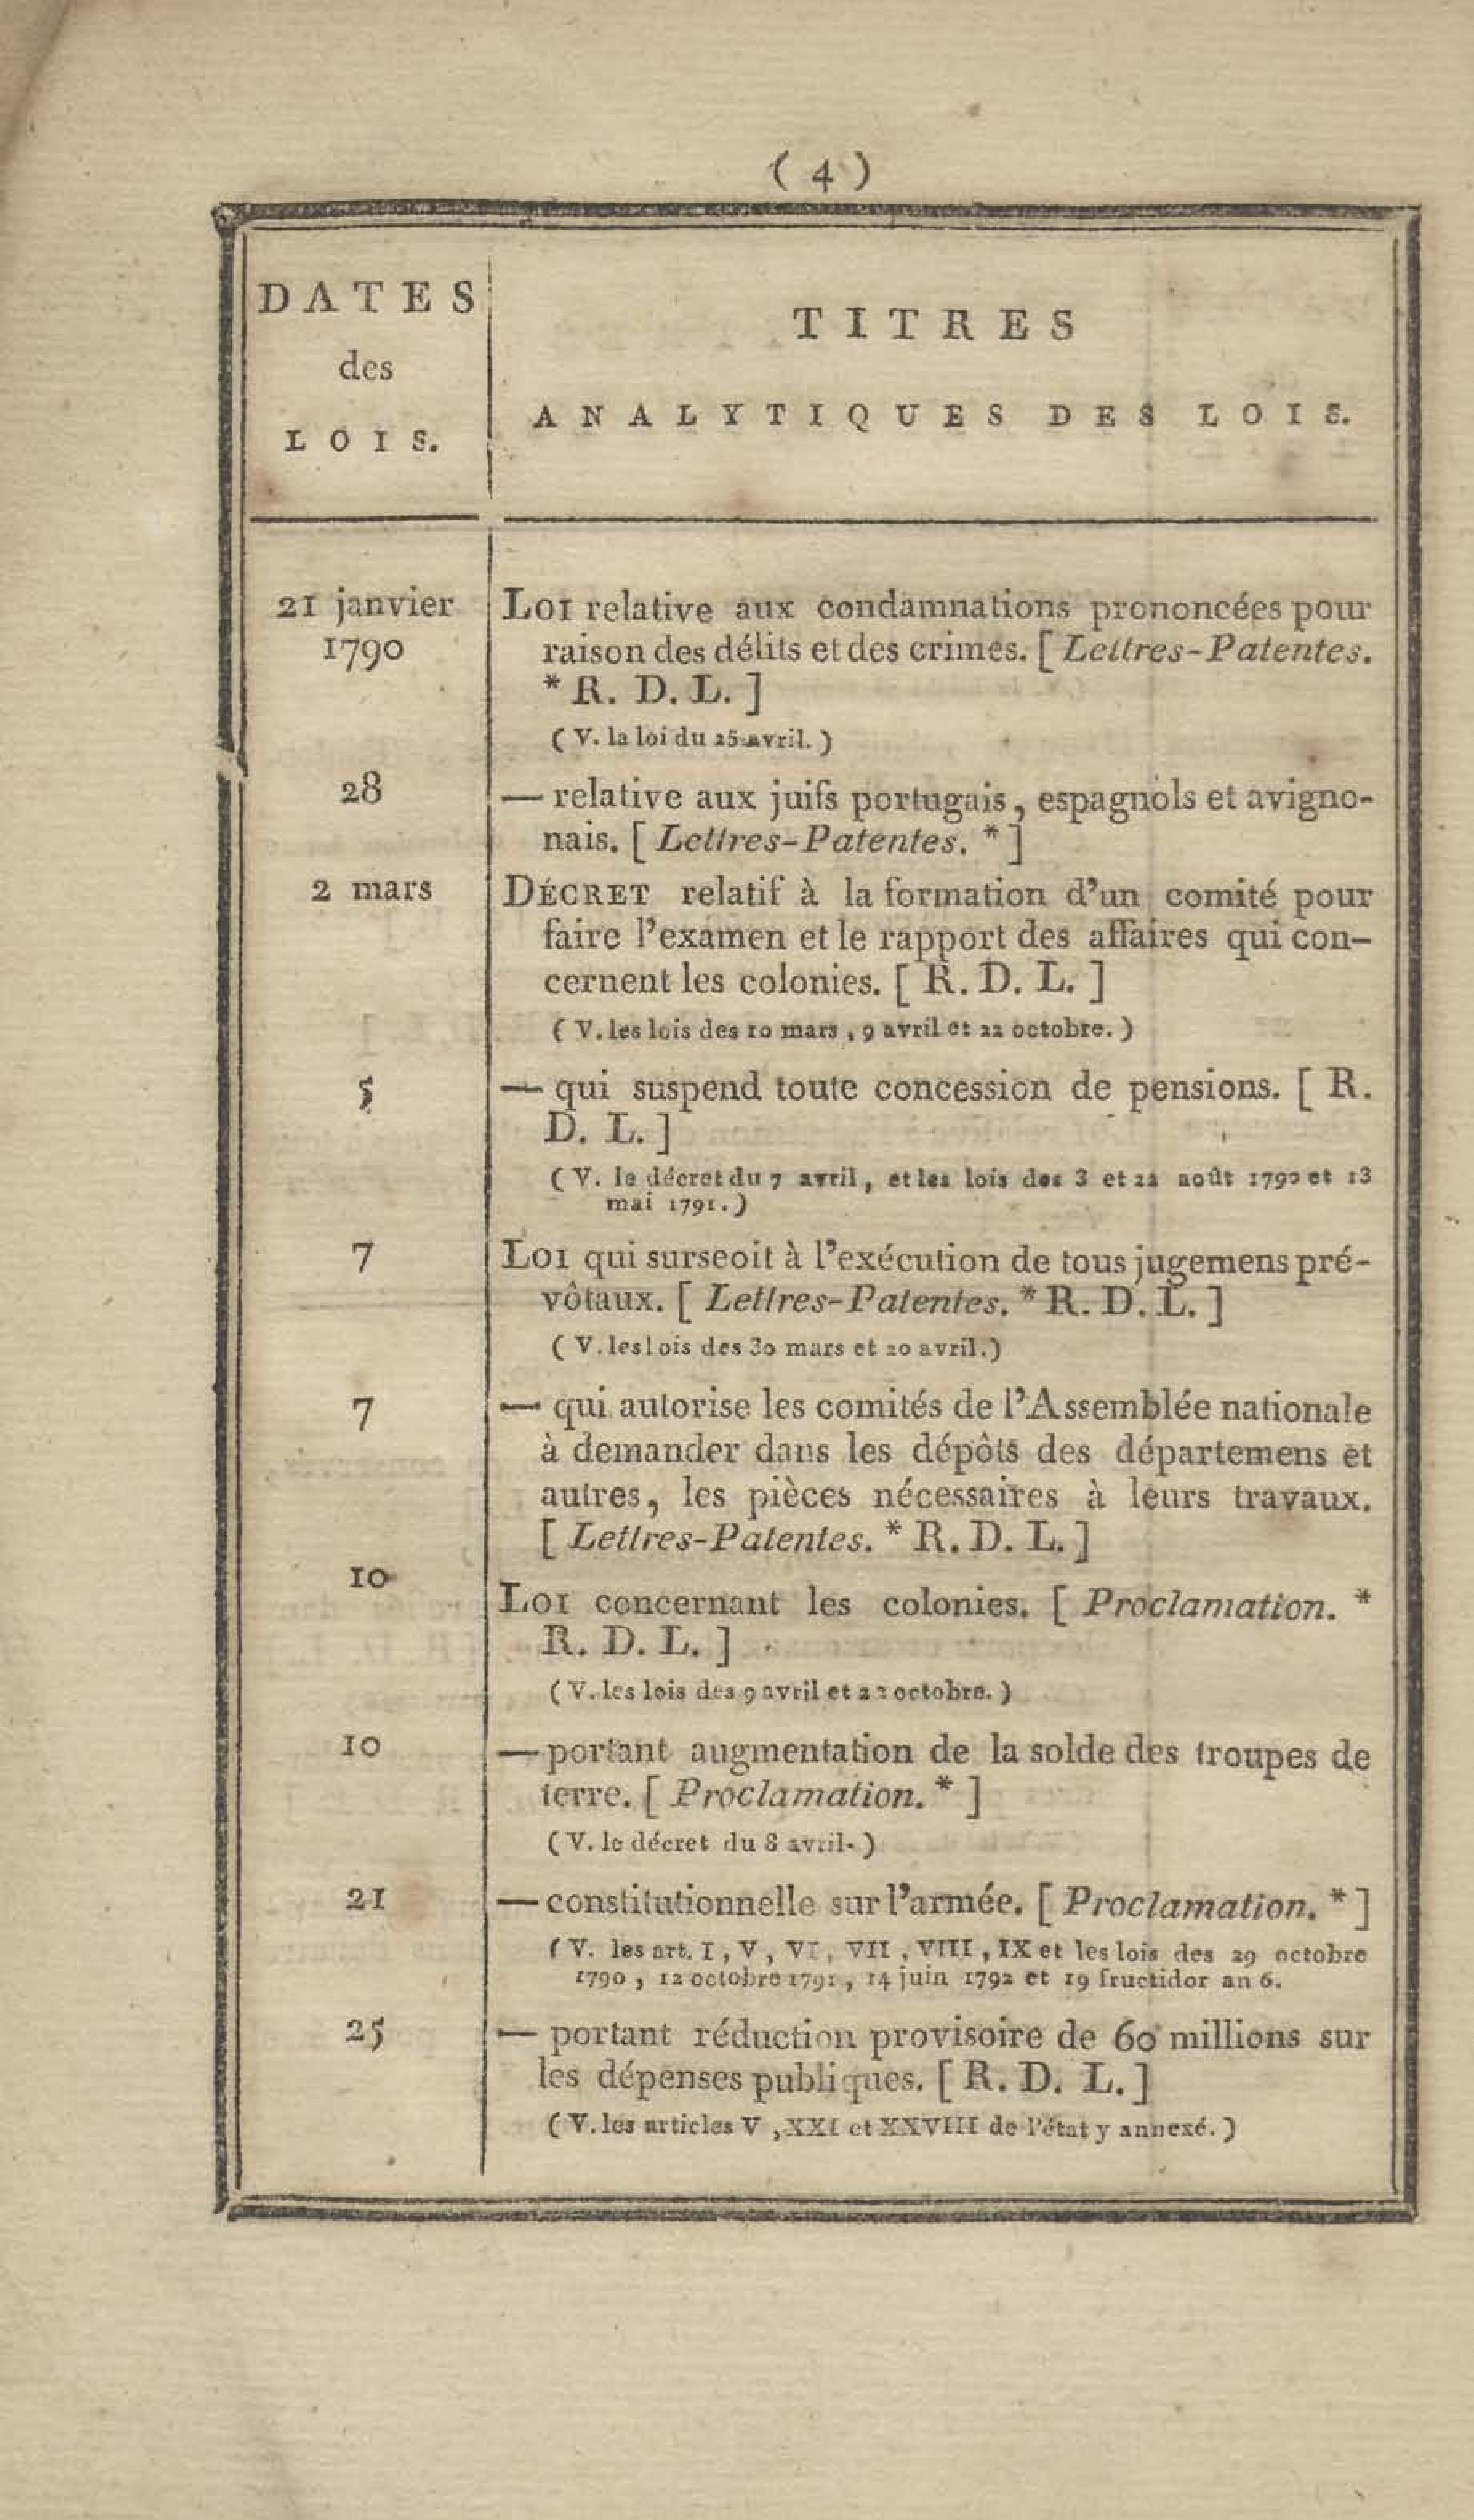 ( 4 )
DATES
des
LOIS.
TITRES
ANALYTIQUES DES LOIS.
21 janvier
1790
LOI relative aux condamnations prononcées pour
raison des délits et des crimes. [ Lettres-Patentes.
* R. D. L. ]
( V. la loi du 25 avril. )
28
— relative aux juifs portugais, espagnols et avigno-
nais. [ Lettres-Patentes. * ]
2 mars
DÉCRET relatif à la formation d'un comité pour
faire l'examen et le rapport des affaires qui con-
cernent les colonies. [ R. D. L. ]
( V. les lois des 10 mars, 9 avril et 22 octobre. )
5
— qui suspend toute concession de pensions. [ R.
D. L. ]
( V. le décret du 7 avril, et les lois des 3 et 22 août 1790 et 13
mai 1791. )
7
LOI qui surseoit à l'exécution de tous jugemens pré-
vôtaux. [ Lettres-Patentes. * R. D. L. ]
( V. les lois des 30 mars et 20 avril. )
7
— qui autorise les comités de l'Assemblée nationale
à demander dans les dépôts des départemens et
autres, les pièces nécessaires à leurs travaux.
[ Lettres-Patentes. * R. D. L. ]
10
LOI concernant les colonies. [ Proclamation. *
R. D. L. ]
( V. les lois des 9 avril et 22 octobre. )
10
— portant augmentation de la solde des troupes de
terre. [ Proclamation. * ]
( V. le décret du 8 avril. )
21
— constitutionnelle sur l'armée. [ Proclamation. * ]
( V. les art. I, V, VI, VII, VIII, IX et les lois des 29 octobre
1790, 12 octobre 1791, 14 juin 1792 et 19 fructidor an 6.
25
— portant réduction provisoire de 60 millions sur
les dépenses publiques. [ R. D. L. ]
( V. les articles V, XXI et XXVIII de l'état y annexé. )